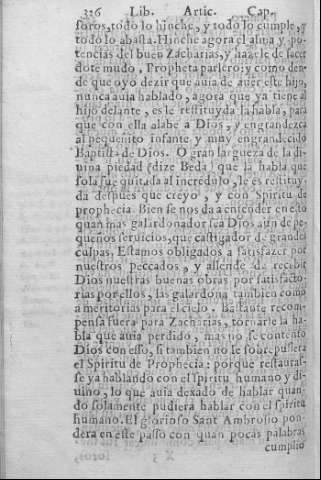 326 Lib. Artic. Cap.
soros, todo lo hinche, y todo lo cumple, y
todo lo abasta. Hinche agora el alma y po-
tencias del buen Zacharias, y haze le de sacer
dote mudo, Propheta parlero: y como den-
de que oyo dezir que auia de auer este hijo,
nunca auia hablado, agora que ya tiene al
hijo delante, es le restituyda la habla, para
que con ella alabe a Dios, y engrandezca
al pequeñito infante y muy engrandecido
Baptista de Dios. O gran largueza de la di-
uina piedad (dize Beda) que la habla que
sola fue quitada al incredulo, le es restituy-
da despues que creyo, y con Spiritu de
prophecia. Bien se nos da a entender en esto
quan mas galardonador sea Dios aun de pe-
queños seruicios, que castigador de grandes
culpas. Estamos obligados a satisfazer por
nuestros peccados, y allende de recebir
Dios nuestras buenas obras por satisfacto-
rias por ellos, las galardona tambien como
a meritorias para el cielo. Bastante recom-
pensa fuera para Zacharias, tornarle la ha-
bla que auia perdido, mas no se contento
Dios con esso, si tambien no le sobrepusiera
el Spiritu de Prophecia: porque restauras-
se ya hablando con el spiritu humano y di-
uino, lo que auia dexado de hablar quan-
do solamente pudiera hablar con el spiritu
humano. El glorioso Sant Ambrosio pon-
dera en este passo con quan pocas palabras
cumplio